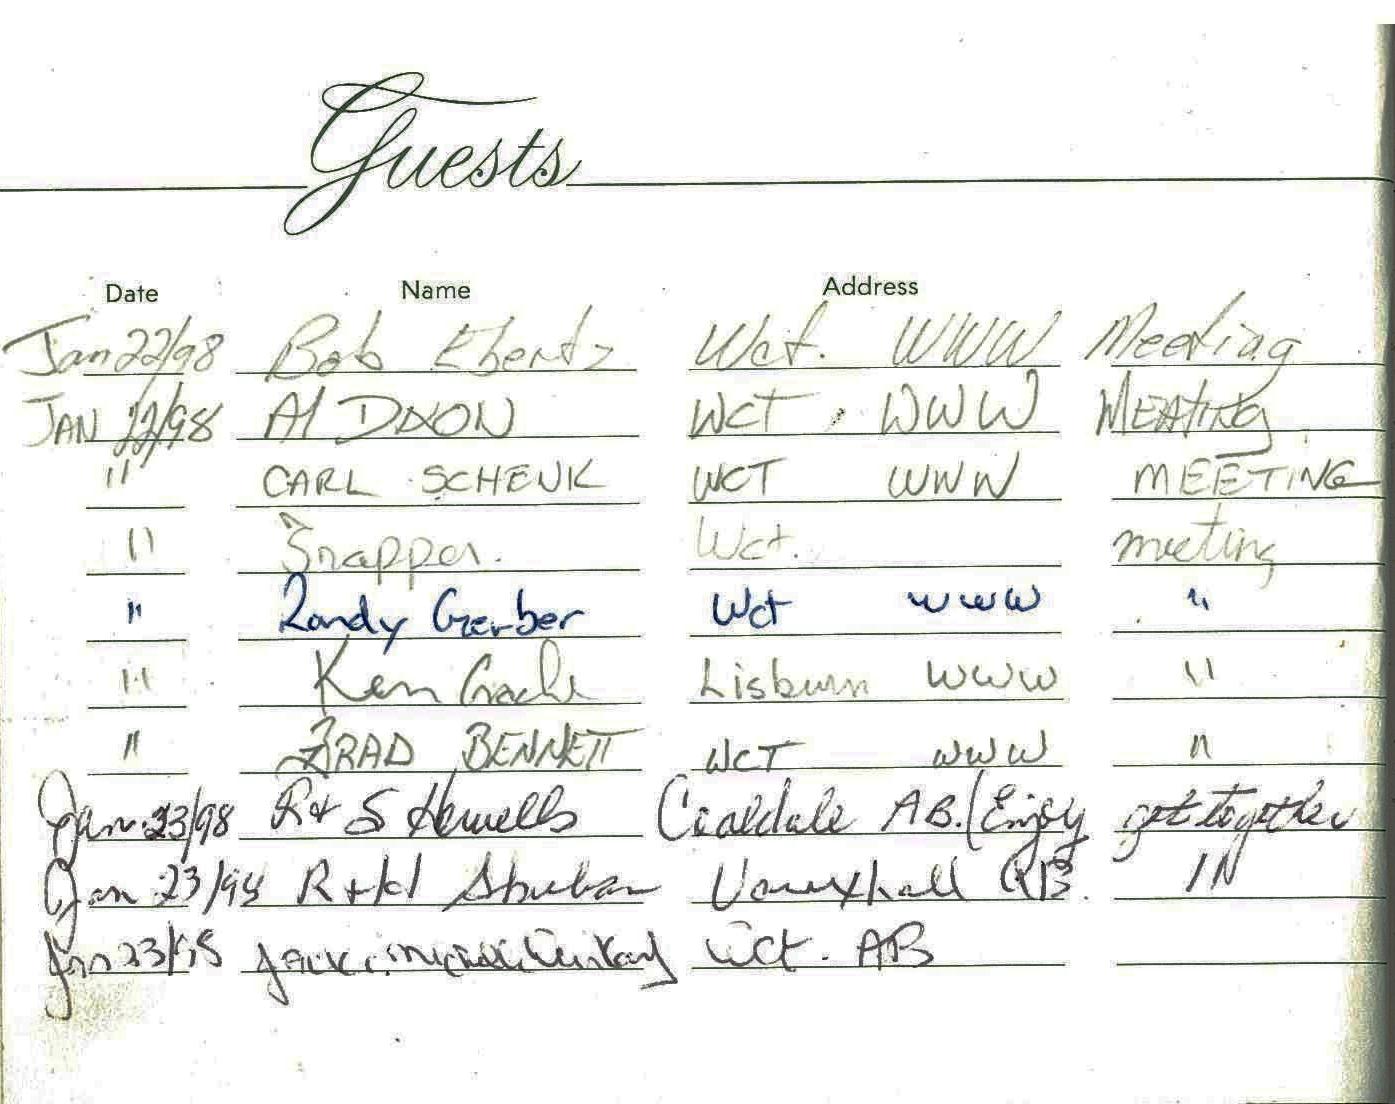 Guests
Date Name Address
Jan 22/98 Bob Ebertz Wct. WWW Meeting
JAN 22/98 Al DIXON WCT. WWW MEATING
" CARL SCHENK WCT WWW MEETING
" Snapper. Wct. meeting
" Randy Gerber Wct WWW "
" Ken Lisburn WWW "
" BRAD BENNETT WCT WWW "
Jan. 23/98 R & S Howells Coaldale AB. (Enjoy get together
Jan 23/98 R & H Vauxhall AB. IN
Jan 23/98 Wct. AB